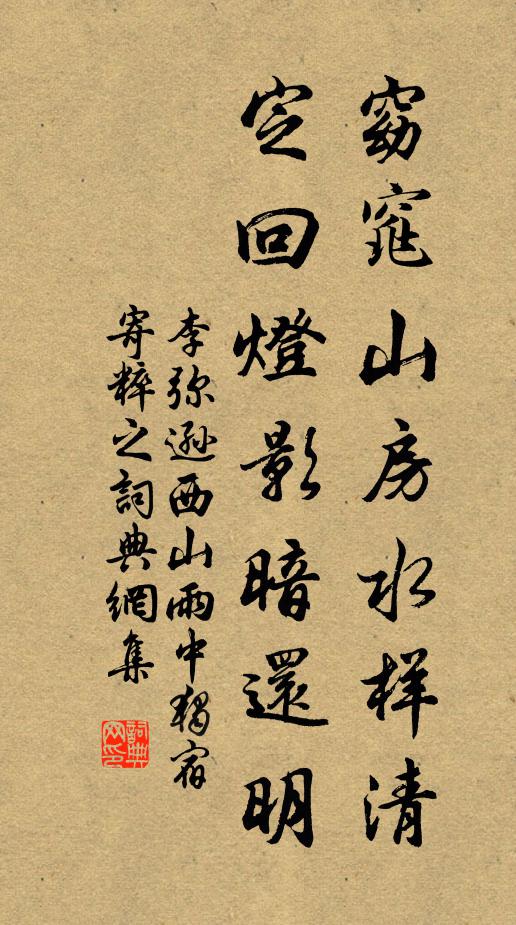 窈窕山房水样清
定回燈影暗還明
李弥逊西山雨中独宿
寄粹之詞典網集
詞典网印